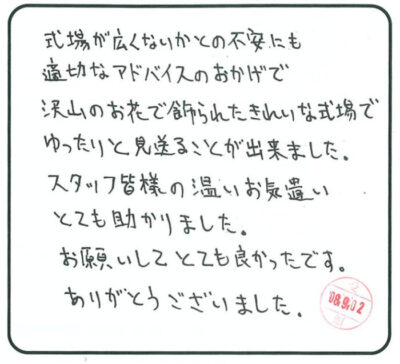 式場が広くないかとの不安にも
適切なアドバイスのおかげで
沢山のお花で飾られたきれいな式場で
ゆったりと見送ることが出来ました。
スタッフ皆様の温いお気遣い
とても助かりました。
お願いしてとても良かったです。
ありがとうございました。
08.9.02